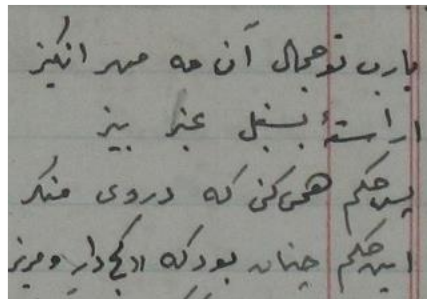 یارب تو جمال آن مه مهر انگیز
اراستهٔ بسنبل عنبر بیز
پس حکم همی کنی که در وی منگر
این حکم چنان بود که کج دار و مریز